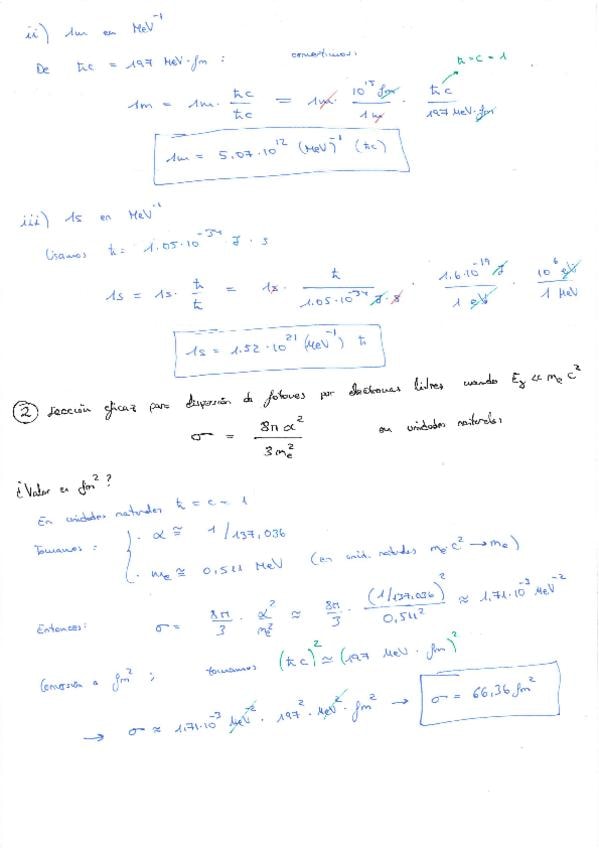 ii) 1m en MeV⁻¹
De ħc = 197 MeV·fm : convertimos: ħ=c=1
1m = 1m · ħc/ħc = 1m · 10¹⁵ fm/1m · ħc/197 MeV·fm
1m = 5,07·10¹² (MeV)⁻¹ (ħc)
iii) 1s en MeV⁻¹
Usamos ħ = 1.05·10⁻³⁴ J · s
1s = 1s · ħ/ħ = 1s · ħ/1.05·10⁻³⁴ J·s · 1.6·10⁻¹⁹ J/1 eV · 10⁶ eV/1 MeV
1s = 1.52·10²¹ (MeV⁻¹) ħ
② Sección eficaz para dispersión de fotones por electrones libres cuando Eγ << mₑc²
σ = 8π α²/3mₑ² en unidades naturales
¿Valor en fm²?
En unidades naturales ħ = c = 1
Tomamos : { · α ≅ 1/137,036
· mₑ ≅ 0,511 MeV (en unid. naturales mₑc² → mₑ)
Entonces: σ = 8π/3 · α²/mₑ² ≈ 8π/3 · (1/137,036)²/0,511² ≈ 1,71·10⁻³ MeV⁻²
Conversión a fm² ; tomamos (ħc)² ≃ (197 MeV · fm)²
→ σ ≈ 1,71·10⁻³ MeV⁻² · 197² · MeV² · fm² → σ = 66,36 fm²